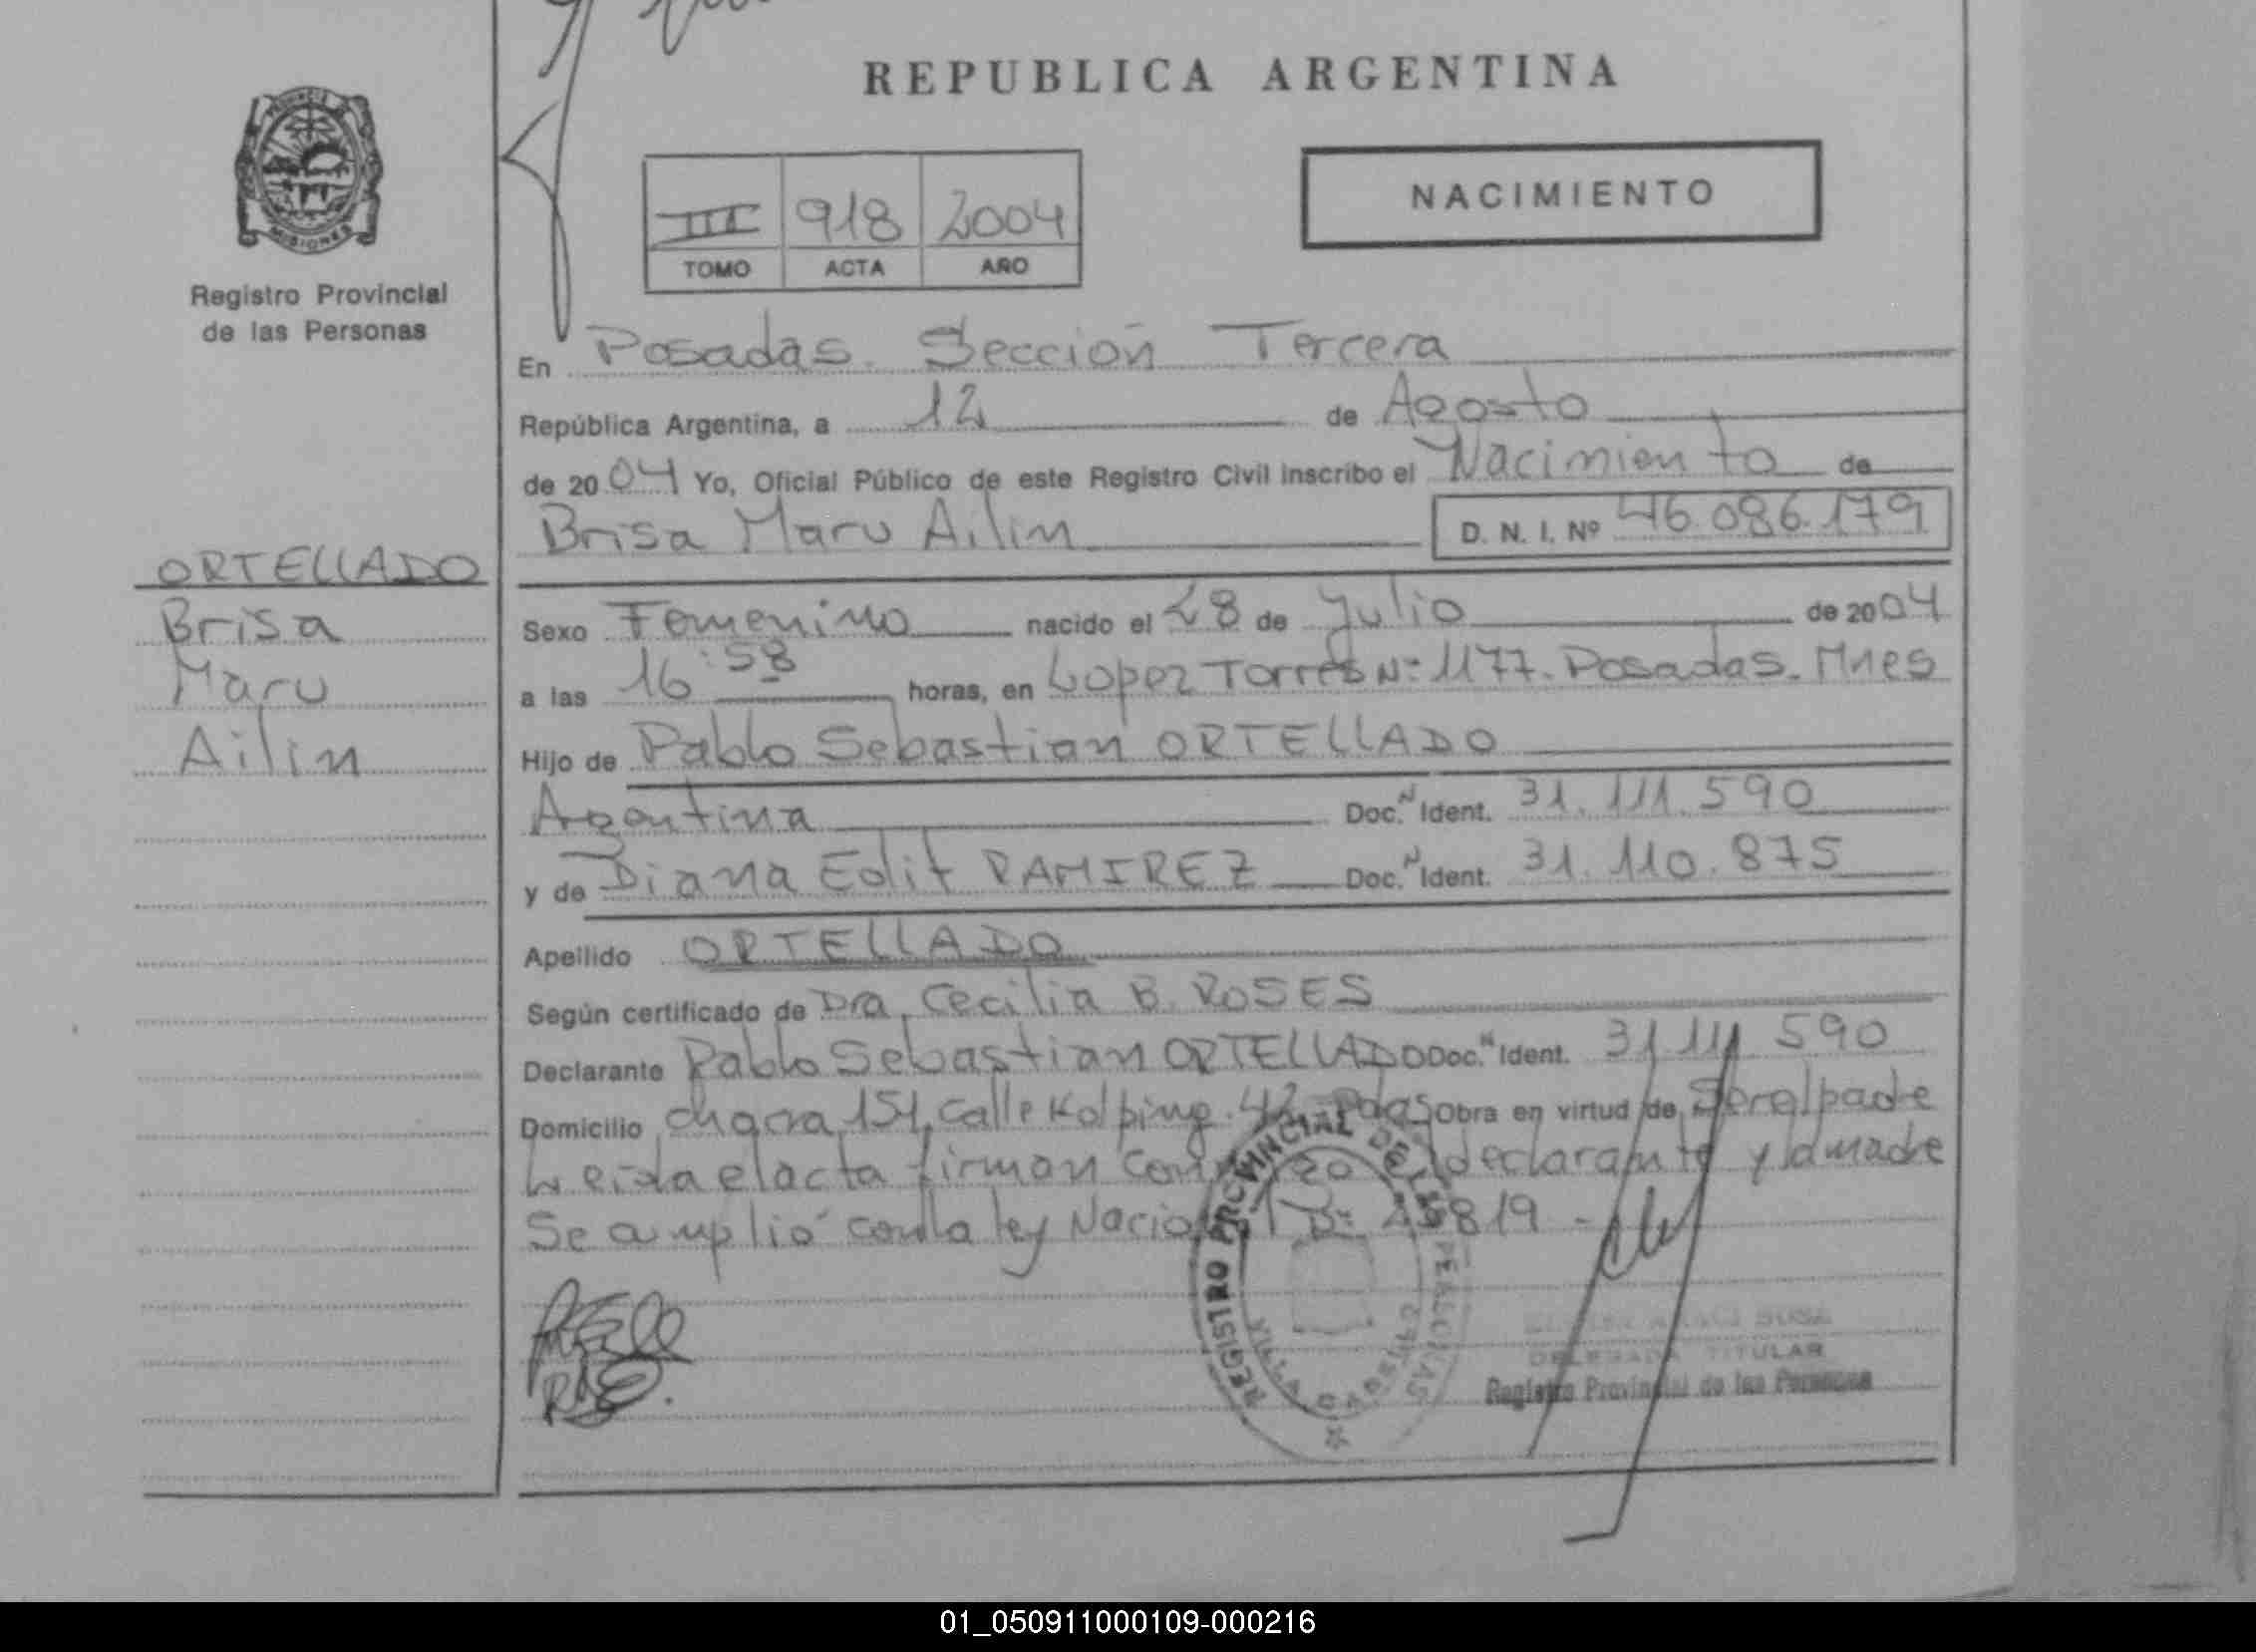 REPUBLICA ARGENTINA
PROVINCIA DE
MISIONES
Registro Provincial
de las Personas
NACIMIENTO
III 918 2004
TOMO ACTA AÑO
En Posadas. Sección Tercera
República Argentina, a 12 de Agosto
de 2004 Yo, Oficial Público de este Registro Civil inscribo el Nacimiento de
Brisa Maru Ailin D. N. I. Nº 46.086.179
ORTELLADO
Brisa
Maru
Ailin
Sexo Femenino nacido el 28 de Julio de 2004
a las 16:58 horas, en Lopez Torres Nº 1177. Posadas. Mnes
Hijo de Pablo Sebastian ORTELLADO
Argentina Doc. N Ident. 31.111.590
y de Diana Edit RAMIREZ Doc. N Ident. 31.110.875
Apellido ORTELLADO
Según certificado de Dra. Cecilia B. ROSES
Declarante Pablo Sebastian ORTELLADO Doc. N Ident. 31 111 590
Domicilio chacra 151, calle Kolping. 42 Pdas Obra en virtud de Ser el padre
Leida el acta firman conmigo el declarante y la madre
Se amplió con la ley Nacional Nº 25819 -
REGISTRO PROVINCIAL DE LAS PERSONAS
VILLA
DELEGADA TITULAR
Registro Provincial de las Personas
01_050911000109-000216